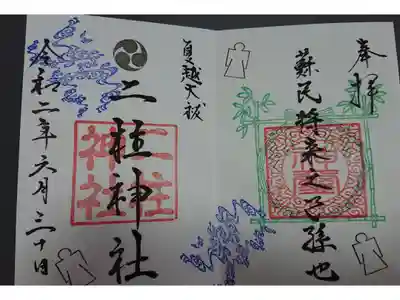 奉拝
蘇民将来之子孫也
夏越大祓
二柱神社
二柱神社
令和二年六月三十日